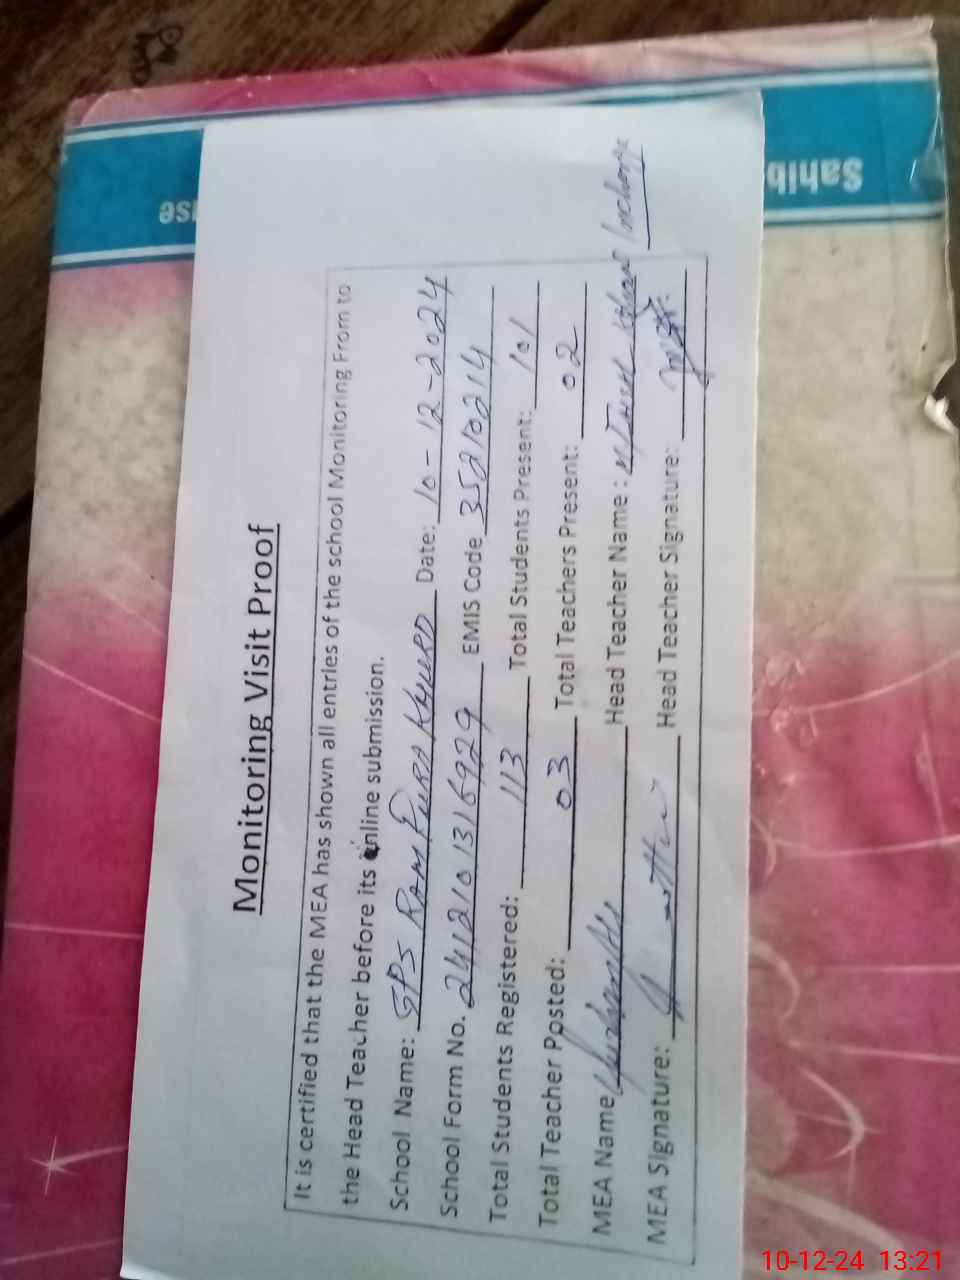 Sahib
use
Monitoring Visit Proof
It is certified that the MEA has shown all entries of the school Monitoring From to
the Head Teacher before its online submission.
School Name: GPS RAM PURA KHURD Date: 10-12-2024
School Form No. 2412101316929 EMIS Code 35210214
Total Students Registered: 113 Total Students Present: 101
Total Teacher Posted: 03 Total Teachers Present: 02
MEA Name Head Teacher Name: Incharge
MEA Signature: Head Teacher Signature:
10-12-24 13:21